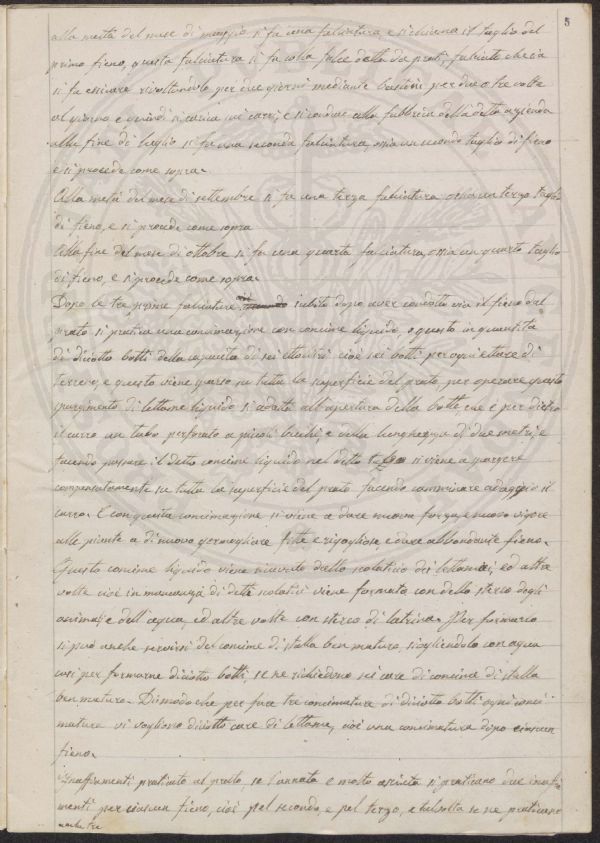 5
alla metà del mese di maggio si fa una falciatura, e si chiama il taglio del
primo fieno, questa falciatura si fa colla falce detta da prati, falciato che sia
si fa essicare rivoltandolo per due giorni mediante bastoni per due o tre volte
al giorno e quindi si carica nei carri, e si conduce alla fabbrica della detta azienda
alla fine di luglio si fa una seconda falciatura, ossia un secondo taglio di fieno
e si procede come sopra.
Alla metà del mese di settembre si fa una terza falciatura ossia un terzo taglio
di fieno, e si procede come sopra
Alla fine del mese di ottobre si fa una quarta falciatura, ossia un quarto taglio
di fieno, e si procede come sopra.
Dopo le tre prime falciature subito dopo aver condotto via il fieno dal
prato si pratica una concimazione con concime liquido e questo in quantità
di diciotto botti della capacità di sei ettolitri cioè sei botti per ogni ettare di
terreno, e questo viene sparso su tutta la superficie del prato, per operare questo
spargimento di lettame liquido si adatta all'apertura della botte, che è per dietro
il carro un tubo perforato a piccoli buchi, e della lunghezza di due metri, e
facendo passare il detto concime liquido nel detto tubo si viene a spargere
su tutta la superficie del prato facendo camminare adaggio il
carro. E con questa concimazione si viene a dare nuova forza, e nuovo vigore
alle piante a di nuovo germogliare forte e rigogliose e dare abbondante fieno.
Questo concime liquido viene ricavato dallo scolaticcio dei lettamai, ed altre
volte cioè in mancanza di detti scolaticci viene formata con dello sterco degli
animali e dell'acqua, ed altre volte con sterco di latrina. Per formarlo
si può anche servirsi del concime di stalla ben maturo, sciogliendolo con aqua
così per formarne diciotto botti, se ne richiedono sei care di concime di stalla
ben maturo. Dimodo che per fare tre concimature di diciotto botti ogni conci-
matura vi vogliono diciotto care di lettame, cioè una concimatura dopo ciascun
fieno.
Inaffiamenti praticato al prato, se l'annata e molto asciuta si praticano due inaffia-
menti per ciascun fieno, cioè pel secondo, e pel terzo, e talvolta se ne praticano
anche tre